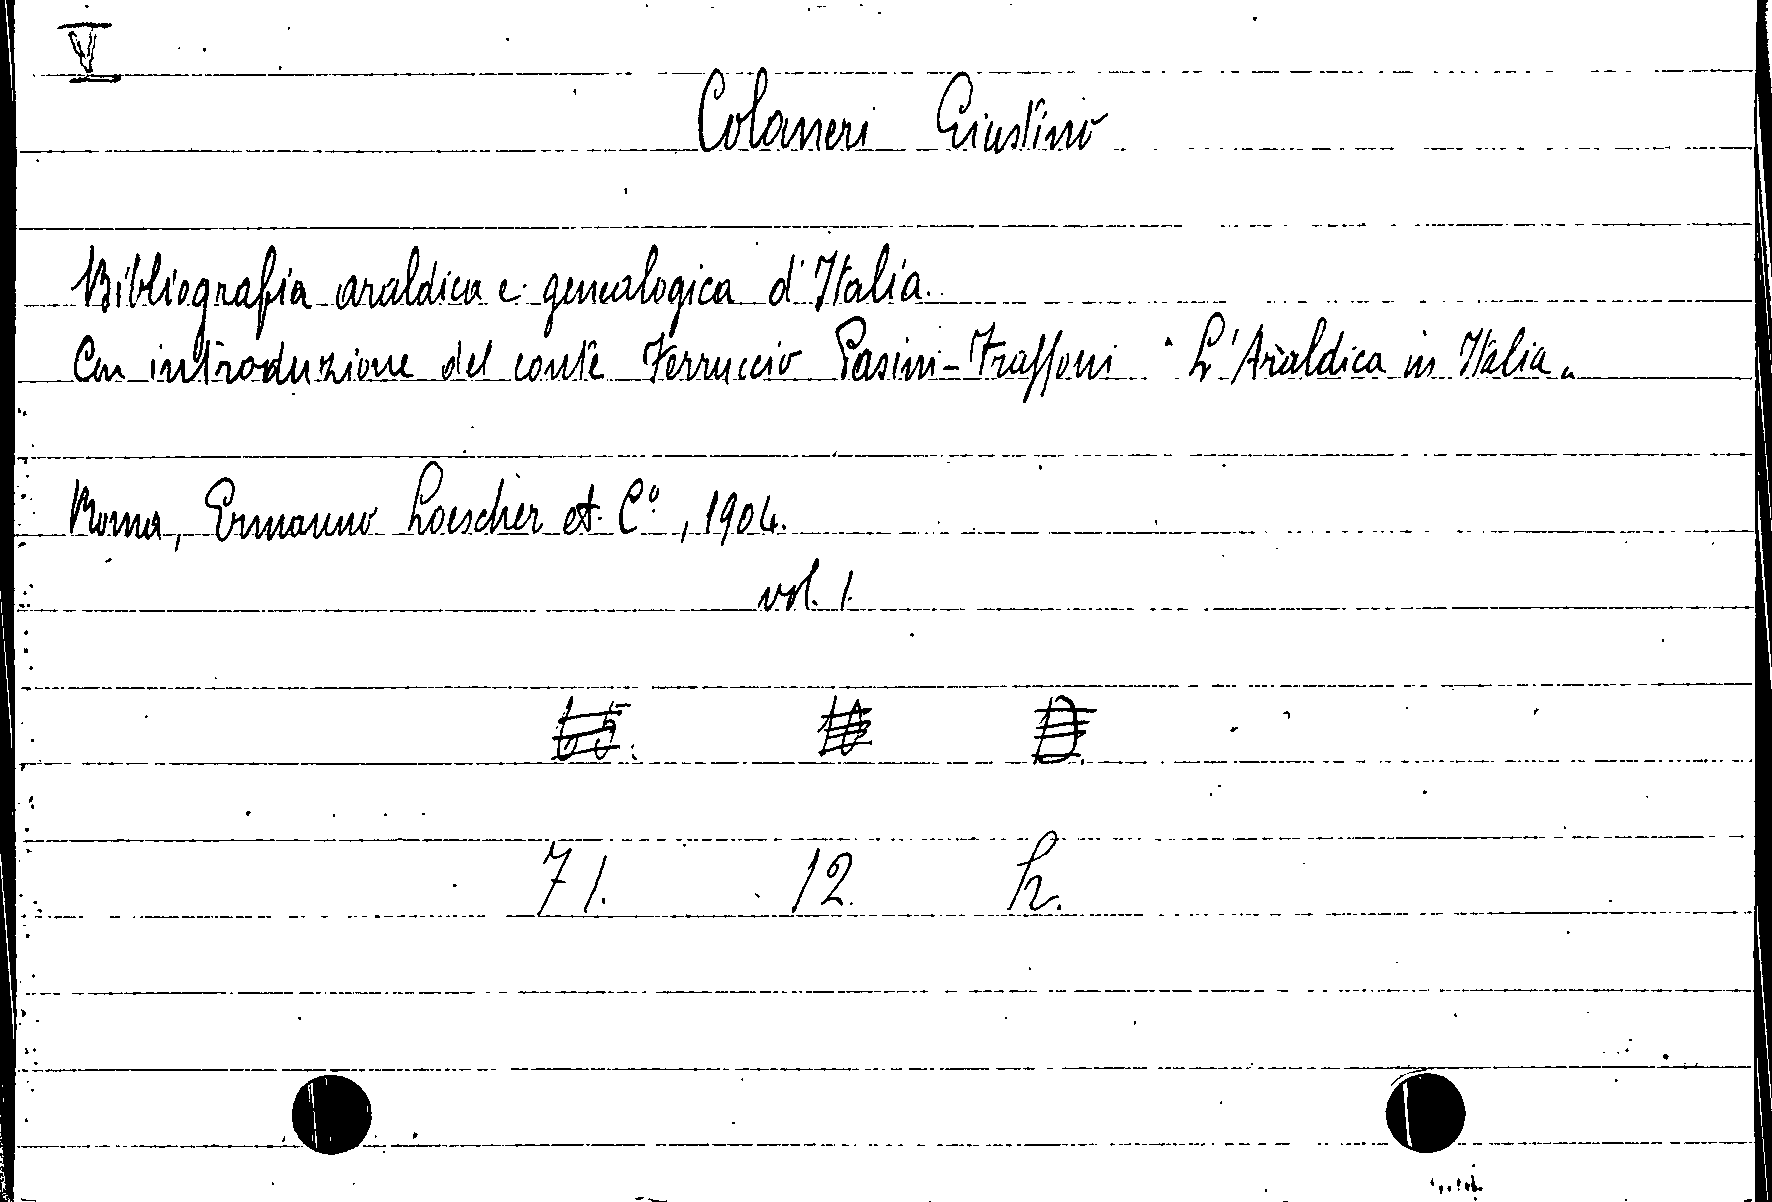 V
Colaneri Giustino
Bibliografia araldica e genealogica d'Italia.
Con introduzione del conte Ferruccio Pasini-Frassoni "L'Araldica in Italia"
Roma, Ermanno Loescher et C°, 1904.
vol. 1.
71. 12. h.